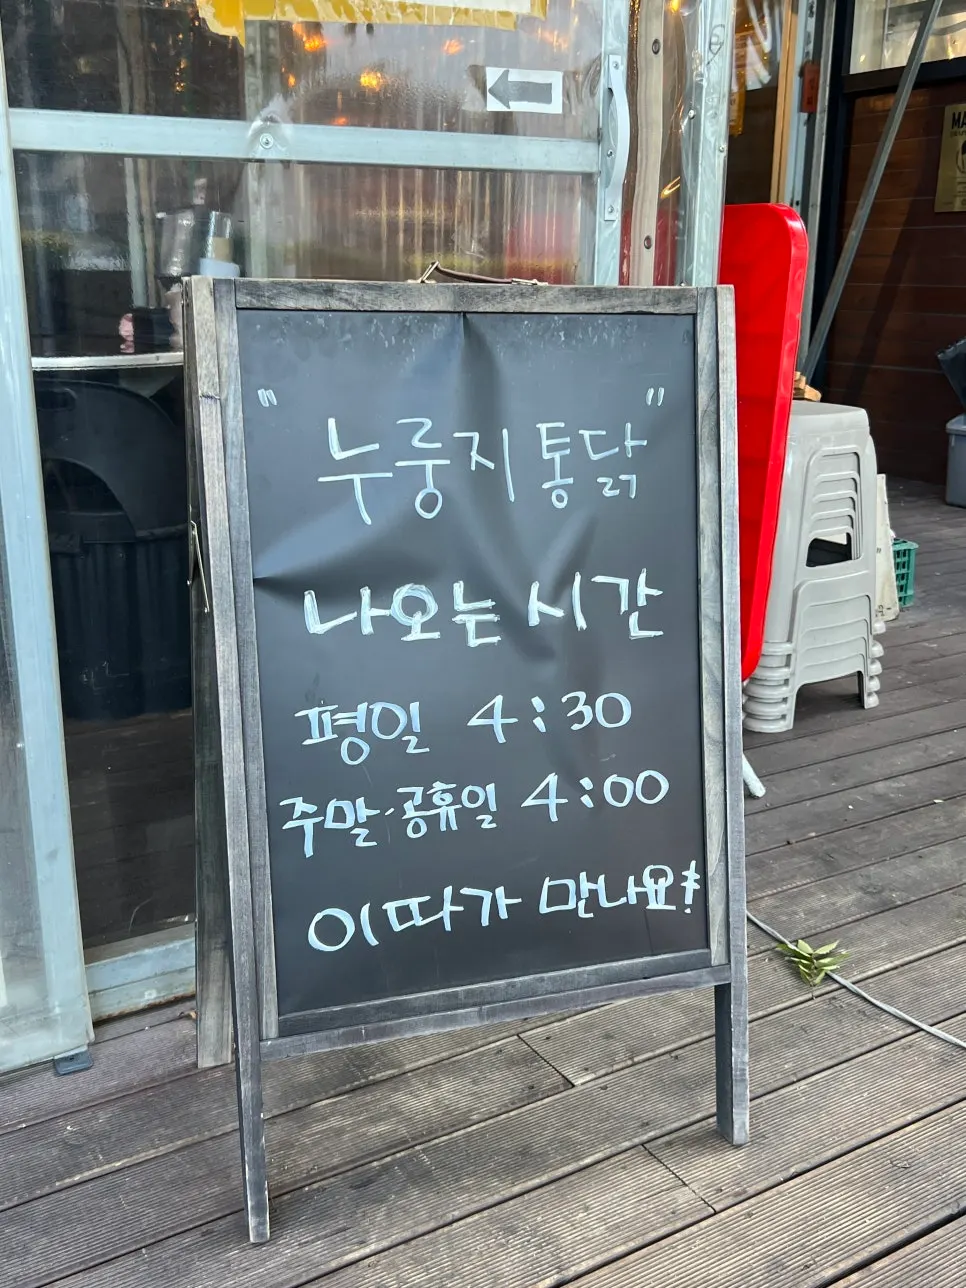 "누룽지통닭"
나오는 시간
평일 4:30
주말·공휴일 4:00
이따가 만나요!
MA